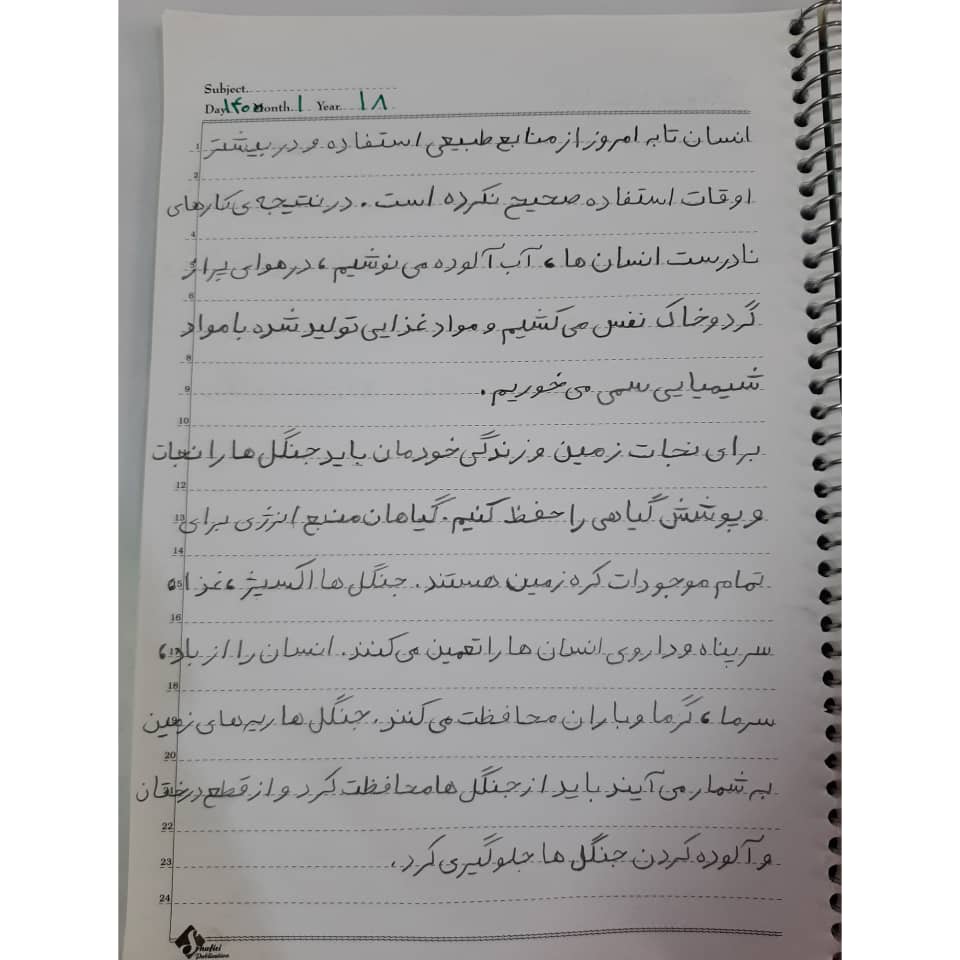 Subject
Day ۱۴۰۵ Month ۱ Year ۱۸
انسان تا به امروز از منابع طبیعی استفاده و در بیشتر
اوقات استفاده صحیح نکرده است. در نتیجه‌ی کارهای
نادرست انسان ها، آب آلوده می نوشیم، در هوای پر از
گرد و خاک نفس می کشیم و مواد غذایی تولید شده با مواد
شیمیایی سمی می خوریم.
برای نجات زمین و زندگی خودمان باید جنگل ها را نجات
و پوشش گیاهی را حفظ کنیم. گیاهان منبع انرژی برای
تمام موجودات کره زمین هستند. جنگل ها اکسیژ، غذا،
سرپناه و داروی انسان ها را تعمین می کنند. انسان را از باد،
سرما، گرما و باران محافظت می کنند. جنگل ها ریه های زمین
به شمار می آیند باید از جنگل ها محافظت کرد و از قطع درختان
و آلوده کردن جنگل ها جلوگیری کرد.
Shafiei
Publication